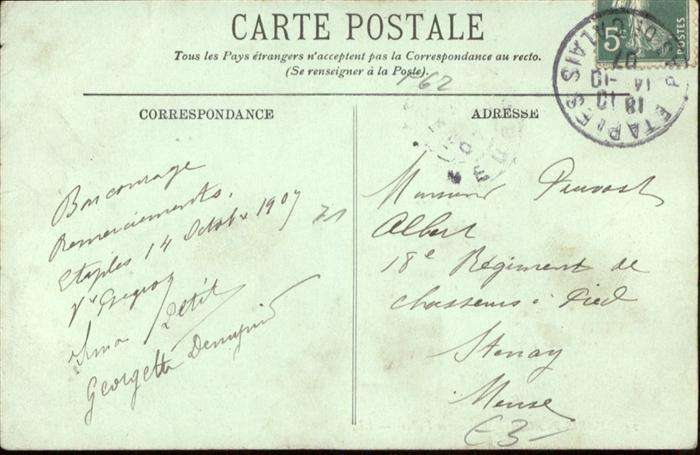 CARTE POSTALE
Tous les Pays étrangers n'acceptent pas la Correspondance au recto.
(Se renseigner à la Poste).
162
CORRESPONDANCE
ADRESSE
Bon courage
Remerciements.
Etaples 14 Octobre 1907
Irma Petit
Georgette
Monsieur Pruvost
Albert
18e Régiment de
chasseurs à Pied
Stenay
Meuse
5c
POSTES
ETAPLES
PAS DE CALAIS
18 10
14 -10
07